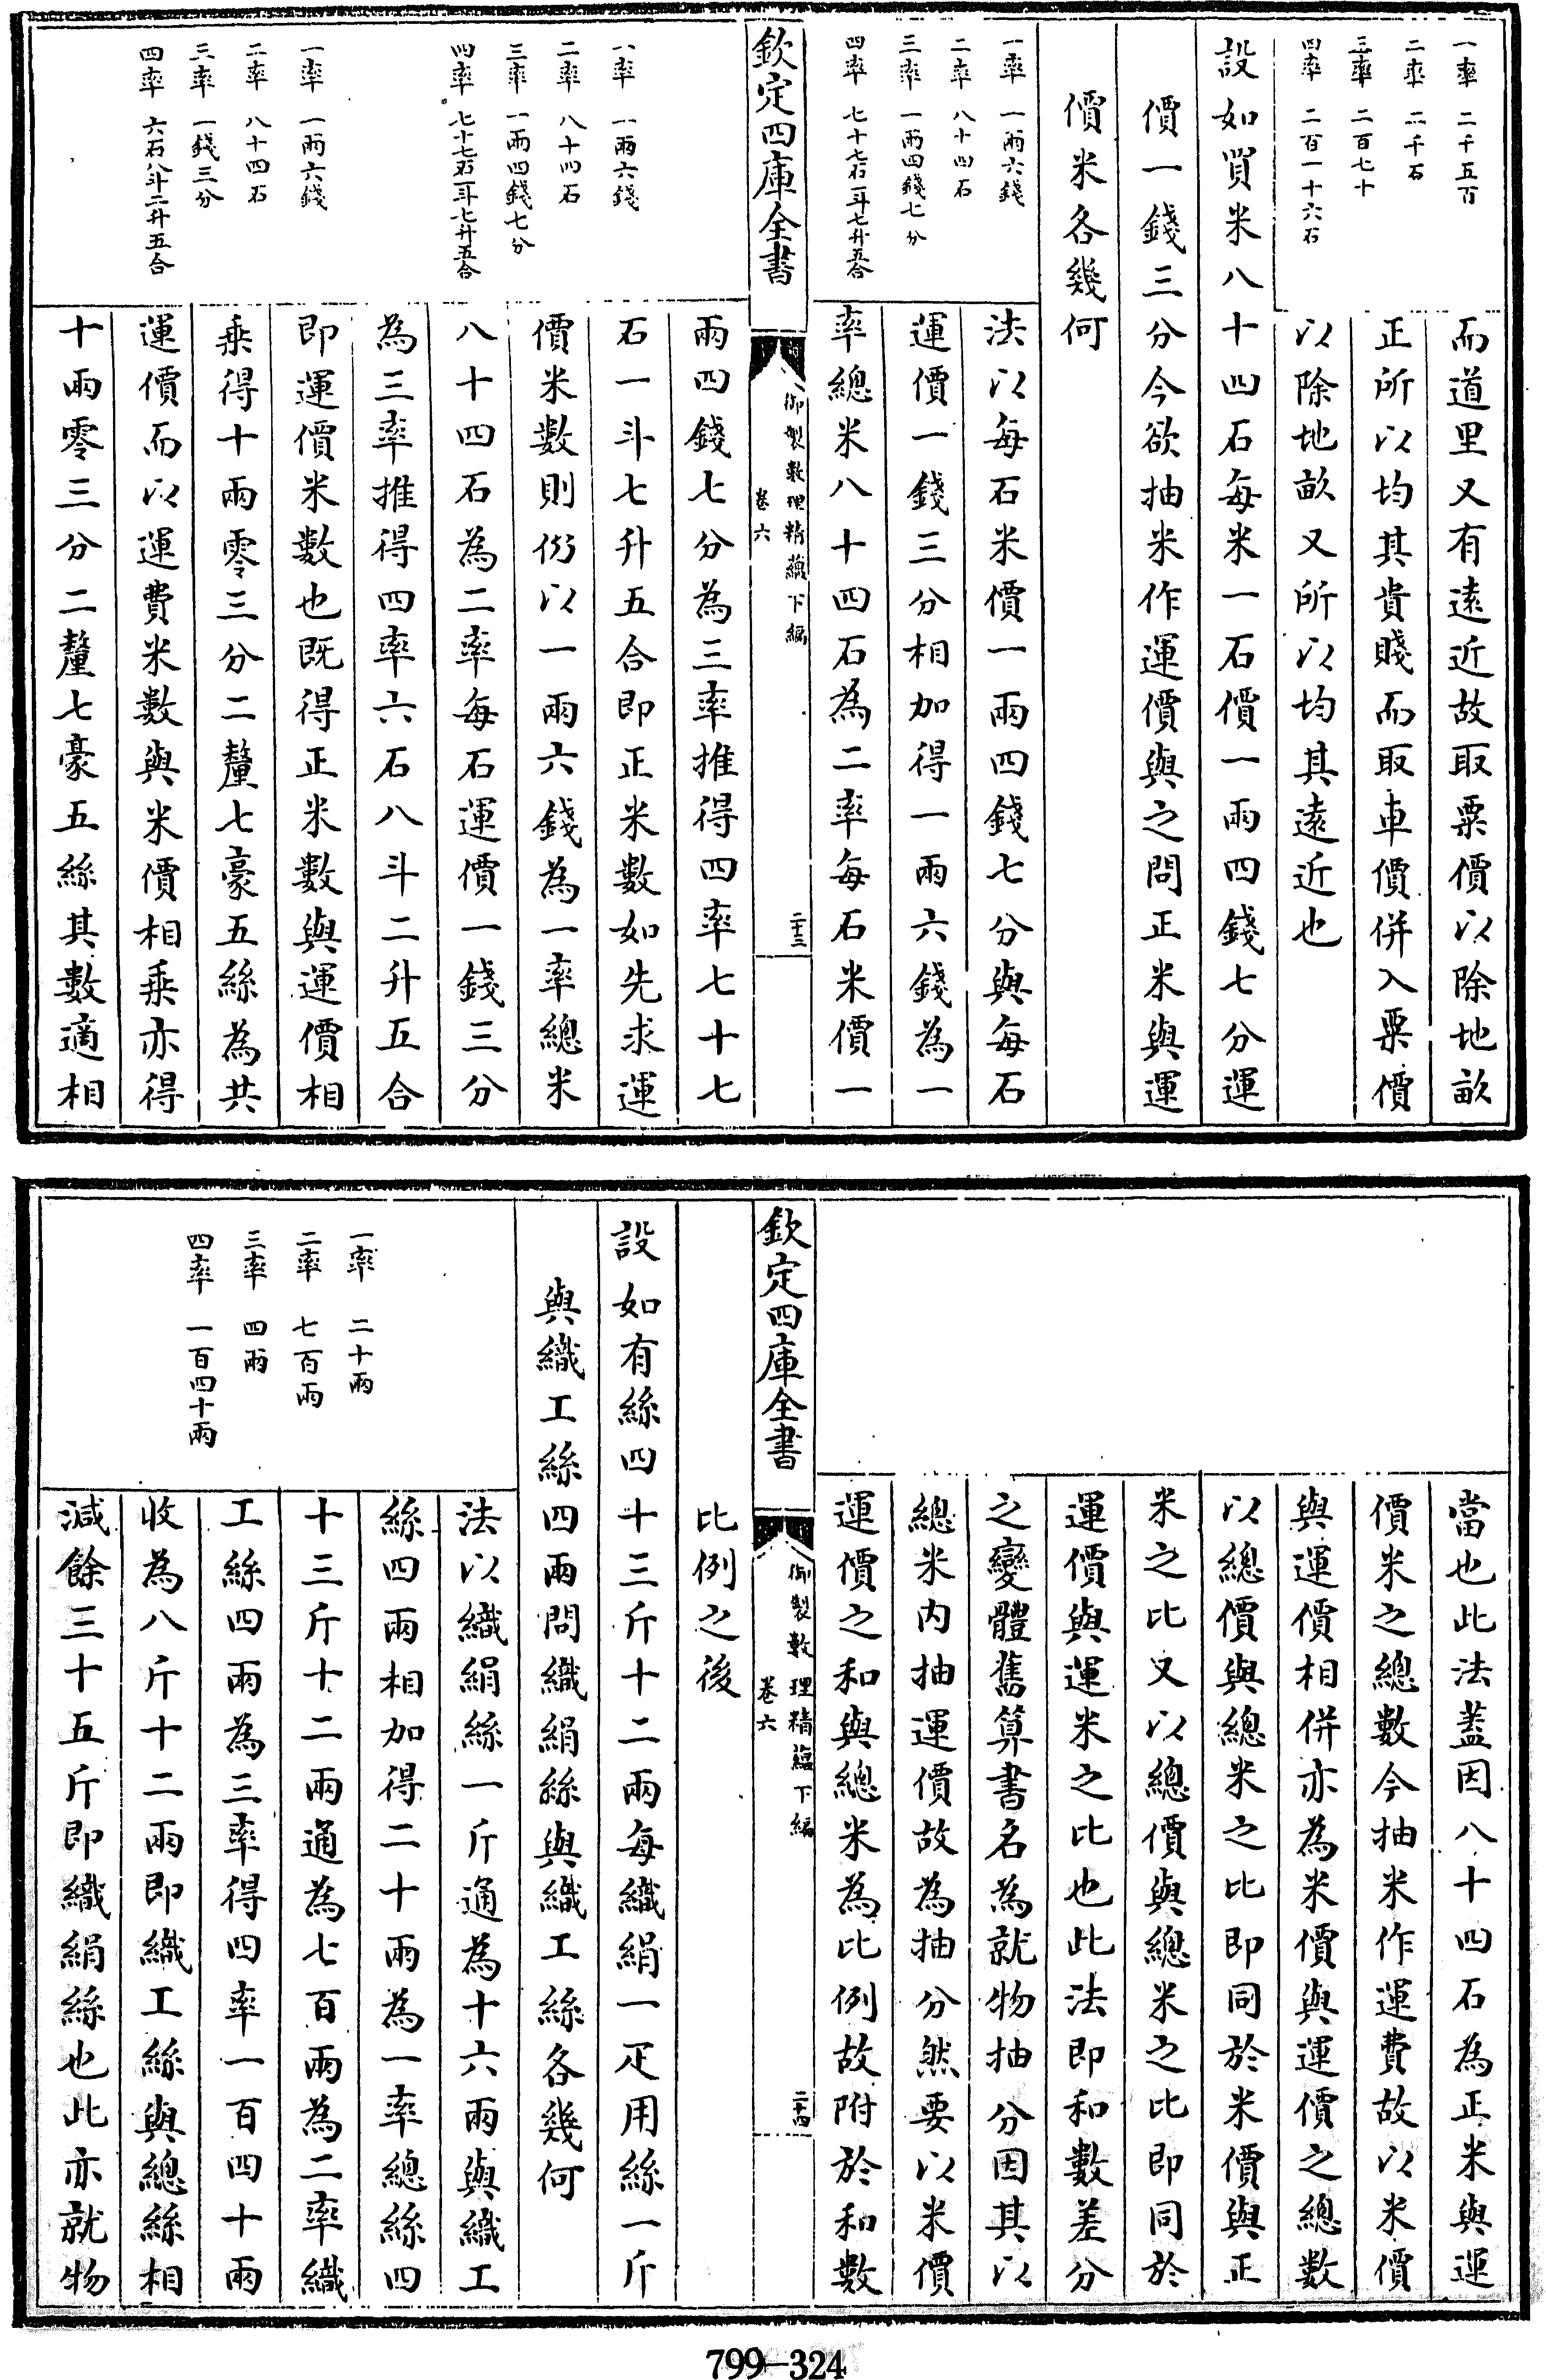 一率　二千五百
二率　二千石
三率　二百七十
四率　二百一十六石
而道里又有遠近故取粟價以除地畝
正所以均其貴賤而取車價併入粟價
以除地畝又所以均其遠近也
設如買米八十四石每米一石價一兩四錢七分運
價一錢三分今欲抽米作運價與之問正米與運
價米各幾何
一率　一兩六錢
二率　八十四石
三率　一兩四錢七分
四率　七十七石一斗七升五合
法以每石米價一兩四錢七分與每石
運價一錢三分相加得一兩六錢為一
率總米八十四石為二率每石米價一
欽定四庫全書
御製數理精蘊下編
卷六
二十三
一率　一兩六錢
二率　八十四石
三率　一兩四錢七分
四率　七十七石一斗七升五合
一率　一兩六錢
二率　八十四石
三率　一錢三分
四率　六石八斗二升五合
兩四錢七分為三率推得四率七十七
石一斗七升五合即正米數如先求運
價米數則仍以一兩六錢為一率總米
八十四石為二率每石運價一錢三分
為三率推得四率六石八斗二升五合
即運價米數也既得正米數與運價相
乘得十兩零三分二釐七豪五絲為共
運價而以運費米數與米價相乘亦得
十兩零三分二釐七豪五絲其數適相
當也此法蓋因八十四石為正米與運
價米之總數今抽米作運費故以米價
與運價相併亦為米價與運價之總數
以總價與總米之比即同於米價與正
米之比又以總價與總米之比即同於
運價與運米之比也此法即和數差分
之變體舊算書名為就物抽分因其以
總米內抽運價故為抽分然要以米價
運價之和與總米為比例故附於和數
欽定四庫全書
御製數理精蘊下編
卷六
二十四
比例之後
設如有絲四十三斤十二兩每織絹一疋用絲一斤
與織工絲四兩問織絹絲與織工絲各幾何
一率　二十兩
二率　七百兩
三率　四兩
四率　一百四十兩
法以織絹絲一斤通為十六兩與織工
絲四兩相加得二十兩為一率總絲四
十三斤十二兩通為七百兩為二率織
工絲四兩為三率得四率一百四十兩
收為八斤十二兩即織工絲與總絲相
減餘三十五斤即織絹絲也此亦就物
799-324